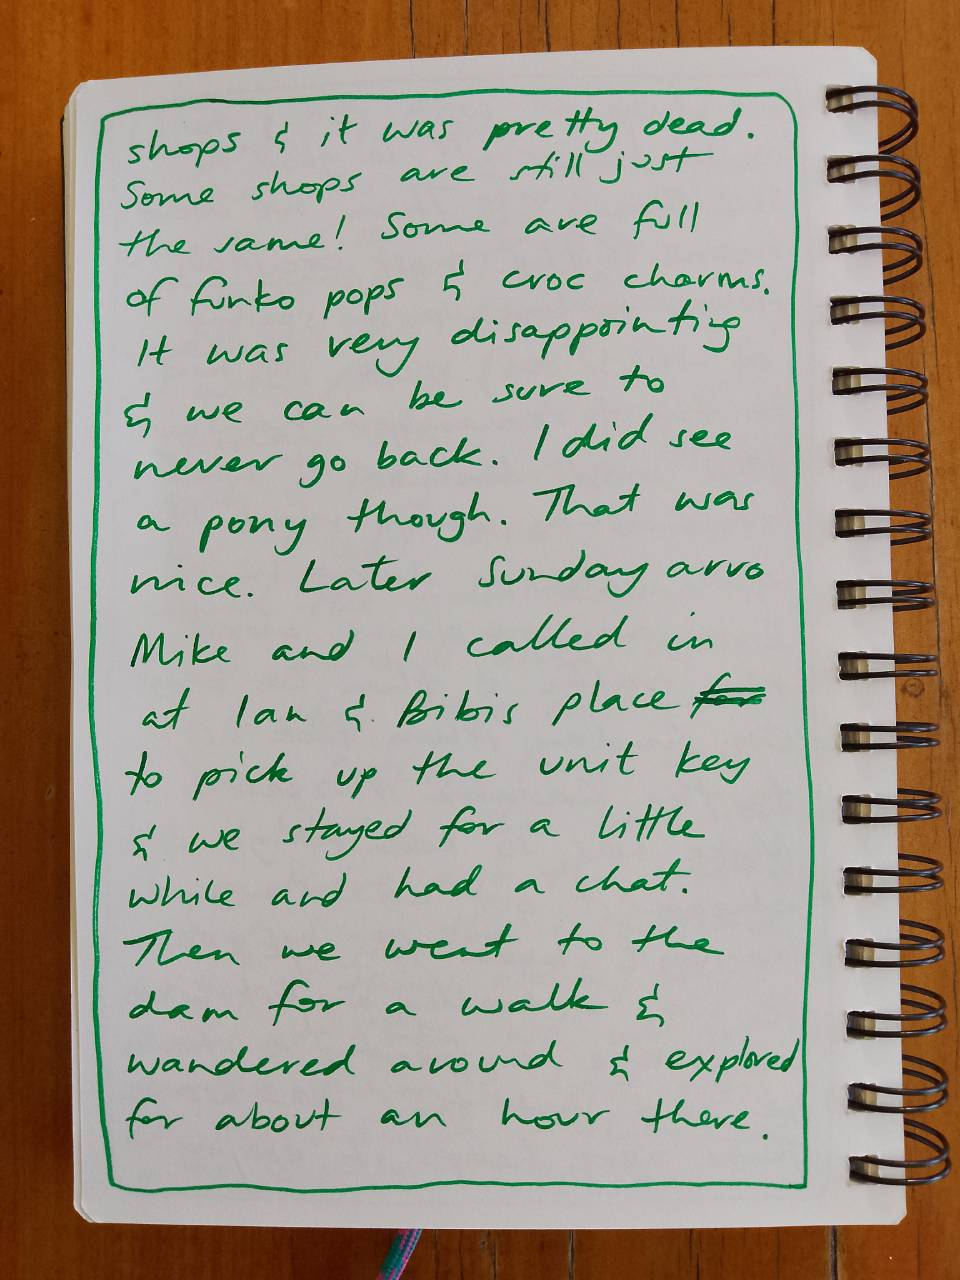 shops & it was pretty dead.
Some shops are still just
the same! Some are full
of funko pops & croc charms.
It was very disappointing
& we can be sure to
never go back. I did see
a pony though. That was
nice. Later Sunday arvo
Mike and I called in
at Ian & Bibis place for
to pick up the unit key
& we stayed for a little
while and had a chat.
Then we went to the
dam for a walk &
wandered around & explored
for about an hour there.